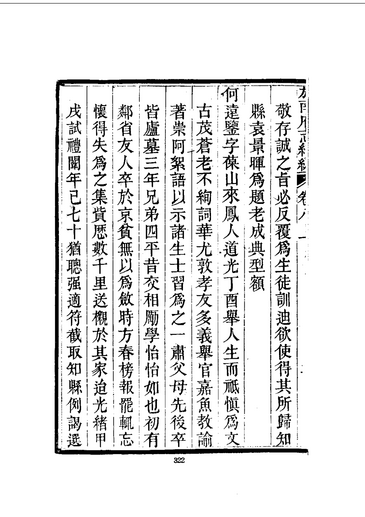 施南府志續編 卷八
敬存誠之旨必反覆爲生徒訓迪欲使得其所歸知
縣袁景暉爲題老成典型額
何遠鑒字葆山來鳳人道光丁酉舉人生而祇慎爲文
古茂蒼老不絢詞華尤敦孝友多義舉官嘉魚教諭
著崇阿絮語以示諸生士習爲之一肅父母先後卒
皆廬墓三年兄弟四平昔交相勵學怡怡如也初有
鄰省友人卒於京貧無以爲斂時方春榜報罷輒忘
懷得失爲之集貲歷數千里送櫬於其家迨光緒甲
戌試禮闈年已七十猶聰强適符截取知縣例謁選
322